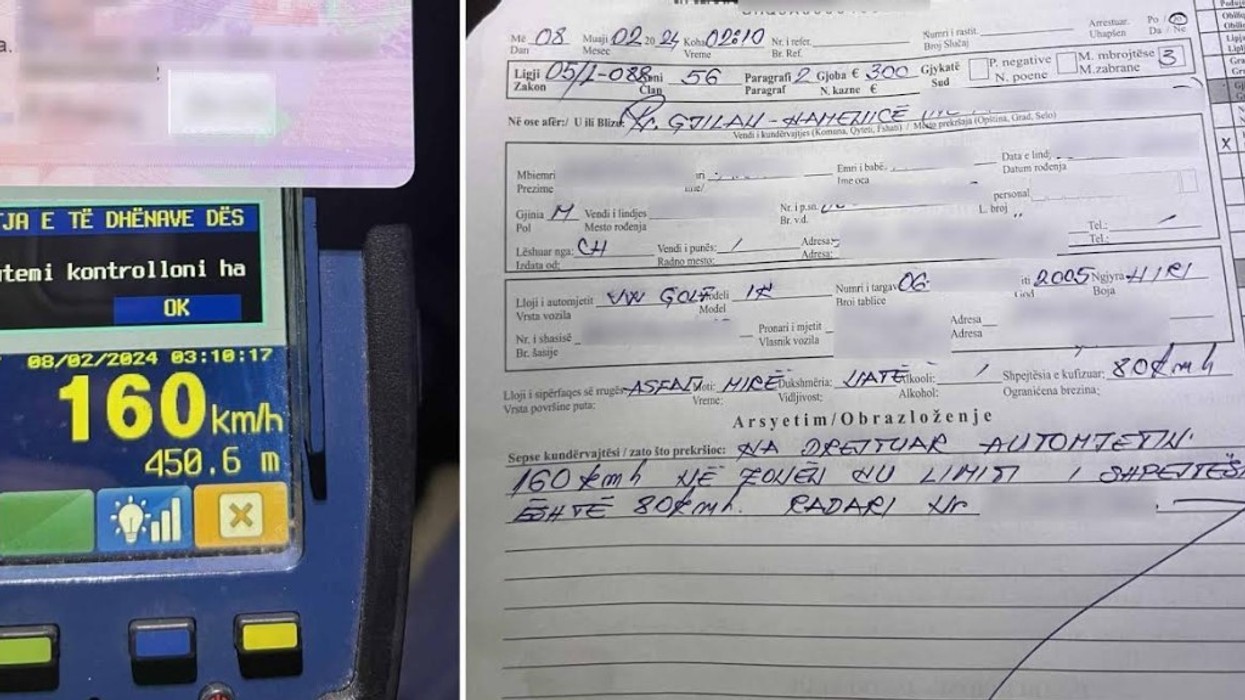 TJA E TË DHËNAVE DËS
temi kontrolloni ha
OK
08/02/2024 03:10:17
160 km/h
450.6 m
Më 08 Muaji 02 20 24 Koha 02:10 Nr. i refer. Numri i rastit. Arrestuar. Po /
Dan Mesec Vreme Br. Ref. Broj Slučaj Uhapšen Da / Ne
Ligji 05/L-088 56 Paragrafi 2 Gjoba € 300 Gjykatë P. negative M. mbrojtëse 3
Zakon Član Paragraf N. kazne € Sud N. poene M.zabrane
Në ose afër:/ U ili Blizu: GJILAN - KAMENICË
Vendi i kundërvajtjes (Komuna, Qyteti, Fshati) / Mesto prekršaja (Opština, Grad, Selo)
Mbiemri Emri i babë. Data e lind.
Prezime Ime oca Datum rođenja
personal
Gjinia M Vendi i lindjes Nr. i p.sh. L. broj
Pol Mesto rođenja Br. v.d. Tel.:
Lëshuar nga: CH Vendi i punës: / Adresa: Tel.:
Izdata od: Radno mesto: Adresa:
Lloji i automjetit VW GOLF Modeli Numri i targave 06 iti 2005 Ngjyra HIRI
Vrsta vozila Model Broi tablice God Boja
Nr. i shasisë Pronari i mjetit Adresa
Br. šasije Vlasnik vozila Adresa
Lloji i sipërfaqes së rrugës: ASFALT Moti: MIRË Dukshmëria: NATË Alkooli: / Shpejtësia e kufizuar: 80 kmh
Vrsta površine puta: Vreme: Vidljivost: Alkohol: Ograničena brezina:
Arsyetim/Obrazloženje
Sepse kundërvajtësi / zato što prekršioc: KA DREJTUAR AUTOMJETIN
160 kmh NË ZONËN KU LIMITI I SHPEJTËSI
ËSHTË 80 kmh. RADARI Nr
X